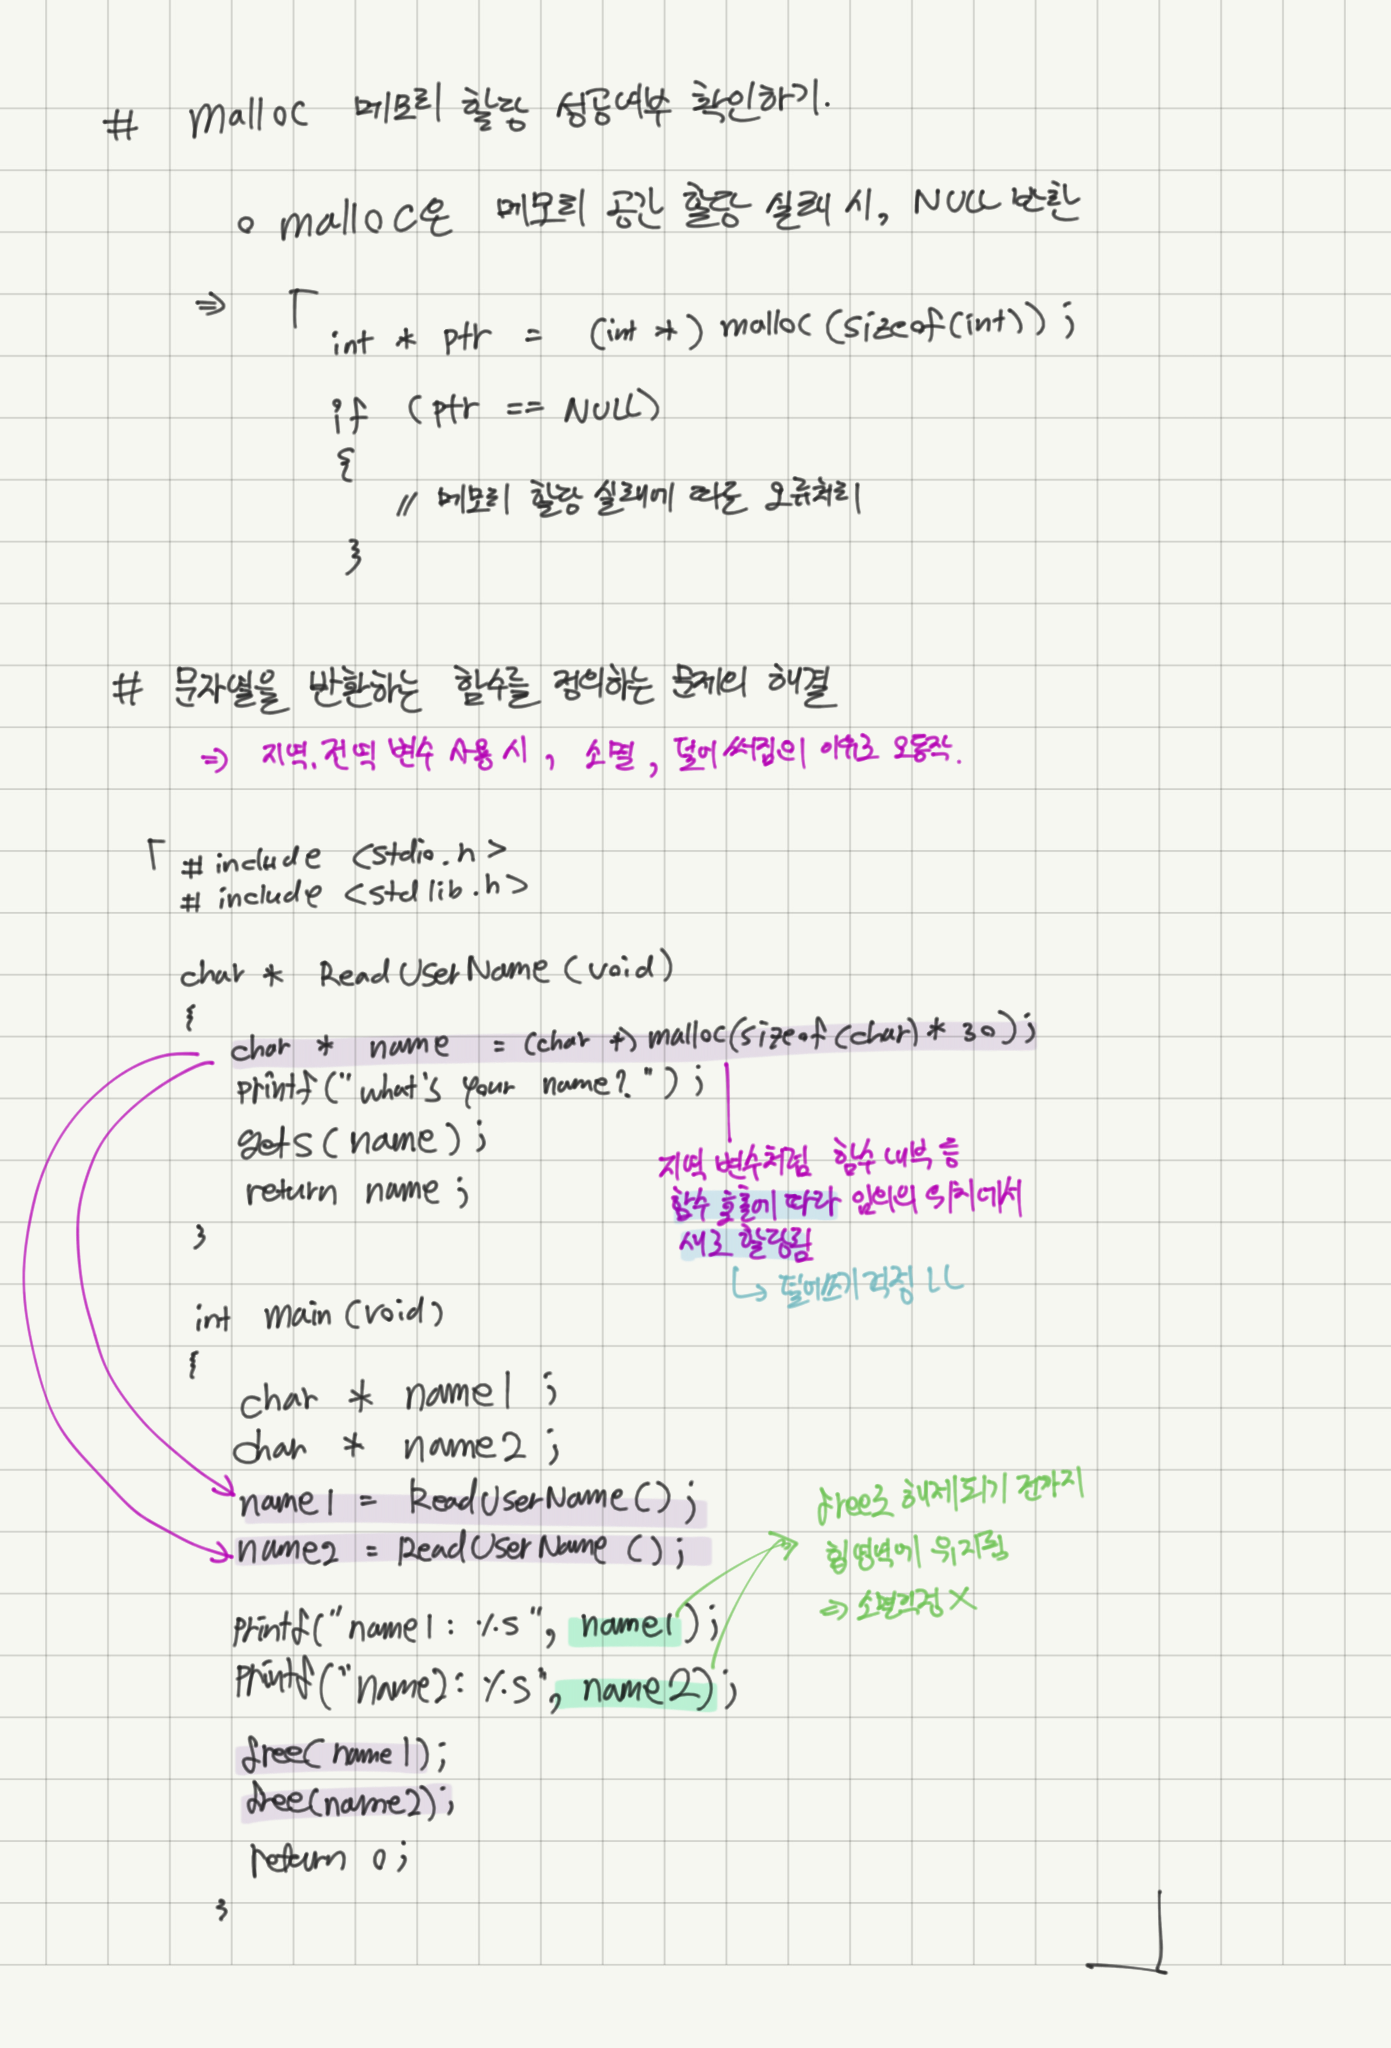 # malloc 메모리 할당 성공여부 확인하기.
o malloc은 메모리 공간 할당 실패 시, NULL 반환
⇒ 「
int * ptr = (int *) malloc (sizeof(int)) ;
if (ptr == NULL)
{
// 메모리 할당 실패에 따른 오류처리
}
# 문자열을 반환하는 함수를 정의하는 문제의 해결
⇒ 지역.전역 변수 사용 시, 소멸, 덮어써짐의 이유로 오동작.
「 # include <stdio.h>
# include <stdlib.h>
char * ReadUserName (void)
{
char * name = (char *) malloc(sizeof(char) * 30);
printf("what's your name? ");
gets(name);
return name;
}
지역 변수처럼 함수 내부 등
함수 호출에 따라 임의의 위치에서
새로 할당됨
↳ 덮어쓰기 걱정 ㄴㄴ
int main (void)
{
char * name1 ;
char * name2 ;
name1 = ReadUserName();
name2 = ReadUserName ();
printf("name1: %s", name1);
printf("name2: %s", name2);
free로 해제되기 전까지
힙영역에 유지됨
⇒ 소멸걱정 X
free(name1);
free(name2);
return 0;
}
」